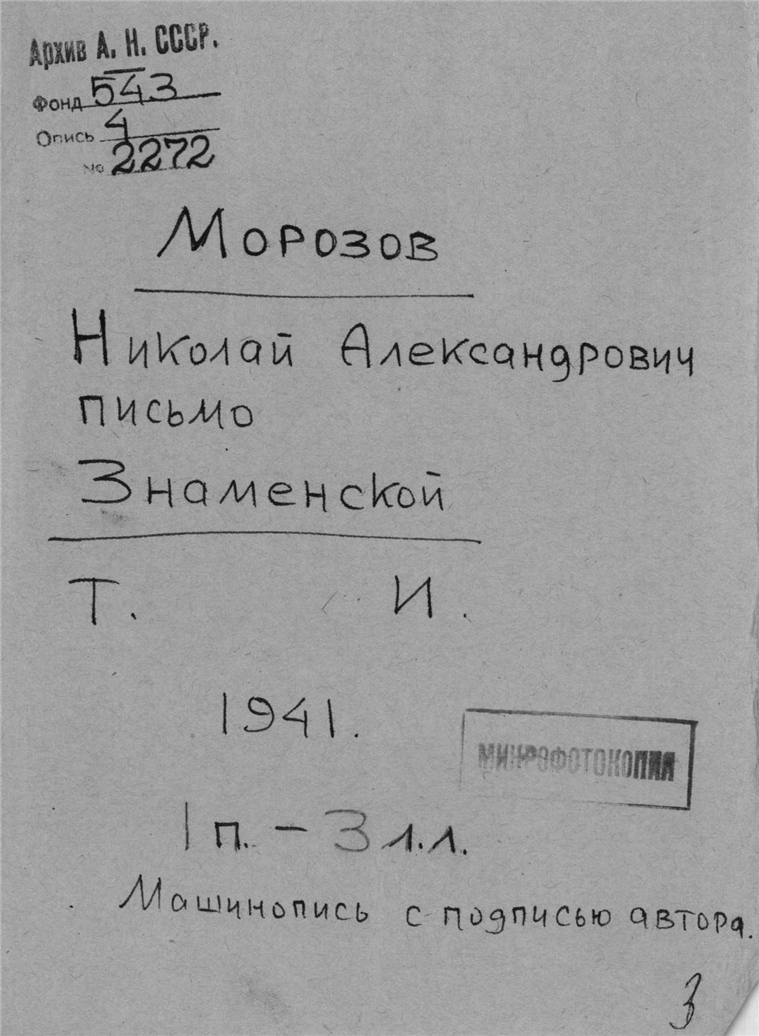 Архив А. Н. СССР.
Фонд 543
Опись 4
№ 2272
Морозов
Николай Александрович
письмо
Знаменской
Т. И.
1941.
МИКРОФОТОКОПИЯ
1 п. – 3 л.л.
Машинопись с подписью автора.
3